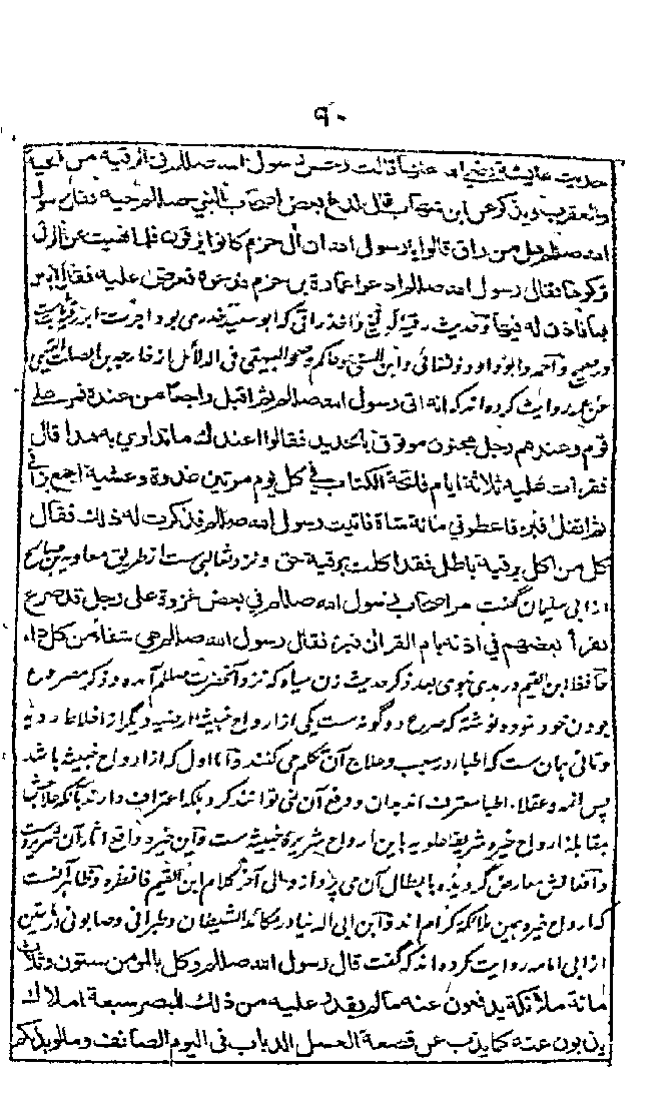 ۹۰
حدیث عایشة قالت رخص رسول الله صللم فی الرقیة من الحیة
والعقرب ویذکر عن ابن شهاب قال لدغ بعض اصحاب النبی صللم حیة فقال رسول
الله صللم هل من راق قالوا یا رسول الله ان آل حزم کانوا یرقون فلما نهیت عن الرقی
ترکوها فقال رسول الله صللم ادعوا عمارة بن حزم فدعوه فعرض علیه فقال لا باس
بها فاذن له فیها وحدیث رقیه لدیغ واخذ راقی که ابو سعید خدری بود اجرت
وصحیح واحمد وابو داود ونسائی وابن السنی وحاکم وصححه البیهقی فی الدلائل از خارجه بن الصلت التیمی
عن عمه روایت کرده اند که انه اتی رسول الله صللم ثم اقبل راجعا من عنده فمر علی
قوم وعندهم رجل مجنون موثق بالحدید فقالوا اعندك ما تداوی به هذا قال
فقرأت علیه ثلاثة ایام فاتحة الکتاب فی کل یوم مرتین غدوة وعشیة اجمع بزاقی
ثم اتفل فبرء فاعطونی مائة شاة فاتیت رسول الله صللم فذکرت له ذلك فقال
کل من اکل برقیة باطل فقد اکلت برقیة حق ونزد ثعالبی ست از طریق معاویه بن صالح
از ابی سلیمان گفت مر اصحاب رسول الله صللم فی بعض غزوة علی رجل قد صرع
فقرأ بعضهم فی اذنه بام القران فبرء فقال رسول الله صللم هی شفاء من کل داء
حافظ ابن القیم در هدی نبوی بعد ذکر حدیث زن سیاه که نزد آنحضرت صللم آمده وذکر مصروع
بودن خود نموده نوشته که صرع دو گونه ست یکی از ارواح خبیثه ارضیه دیگر از اخلاط ردیه
وثانی همان ست که اطبا در سبب وعلاج آن تکلم می کنند واما اول که از ارواح خبیثه باشد
پس ائمه وعقلاء اطبا معترف اند بدان ودفع آن نمی توانند کرد بلکه اعتراف دارند بآنکه علاجش
بمقابله ارواح خیره شریفه علویه باین ارواح شریره خبیثه ست واین خیره دافع آثار آن شریره ست
وافعالش معارض گردیده بابطال آن می پردازد الی آخر کلام ابن القیم فانظره وظاهر آنست
که ارواح خیره همین ملائکه کرام اند وابن ابی الدنیا در مکائد الشیطان وطبرانی وصابونی در مئتین
از ابی امامه روایت کرده اند که گفت قال رسول الله صللم وکل بالمومن ستون وثلاث
مائة ملائکة یدفعون عنه ما لم یقدر علیه من ذلك للبصر سبعة املاك
یذبون عنه کما یذب عن قصعة العسل الذباب فی الیوم الصائف وما لو بدا لکم